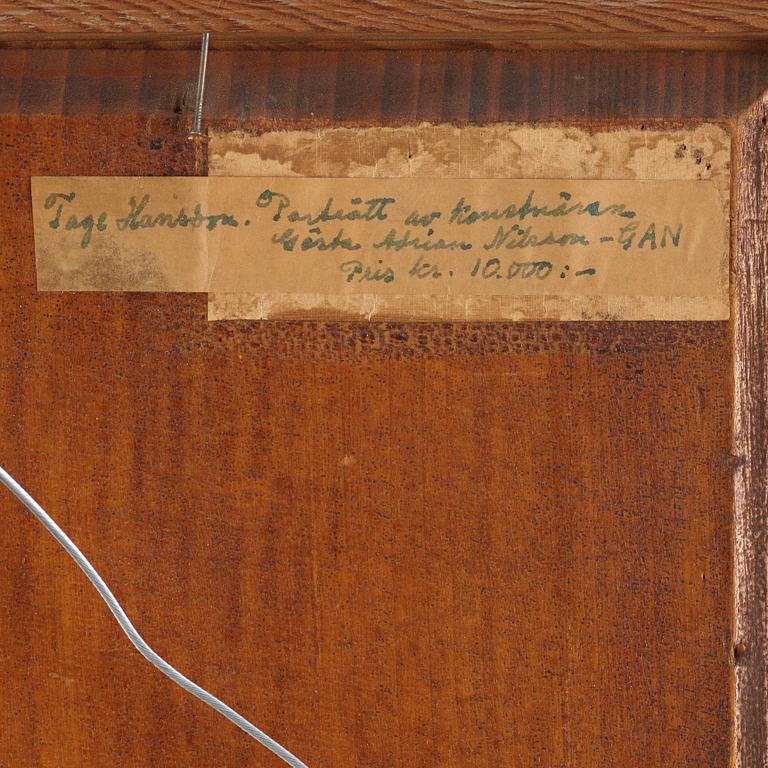 Tage Hansson. Porträtt av konstnären
Gösta Adrian Nilsson - GAN
Pris kr. 10.000:-